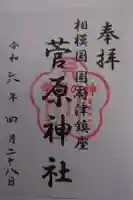 奉拝
相模国国府津鎮座
菅原神社
令和六年四月二十八日